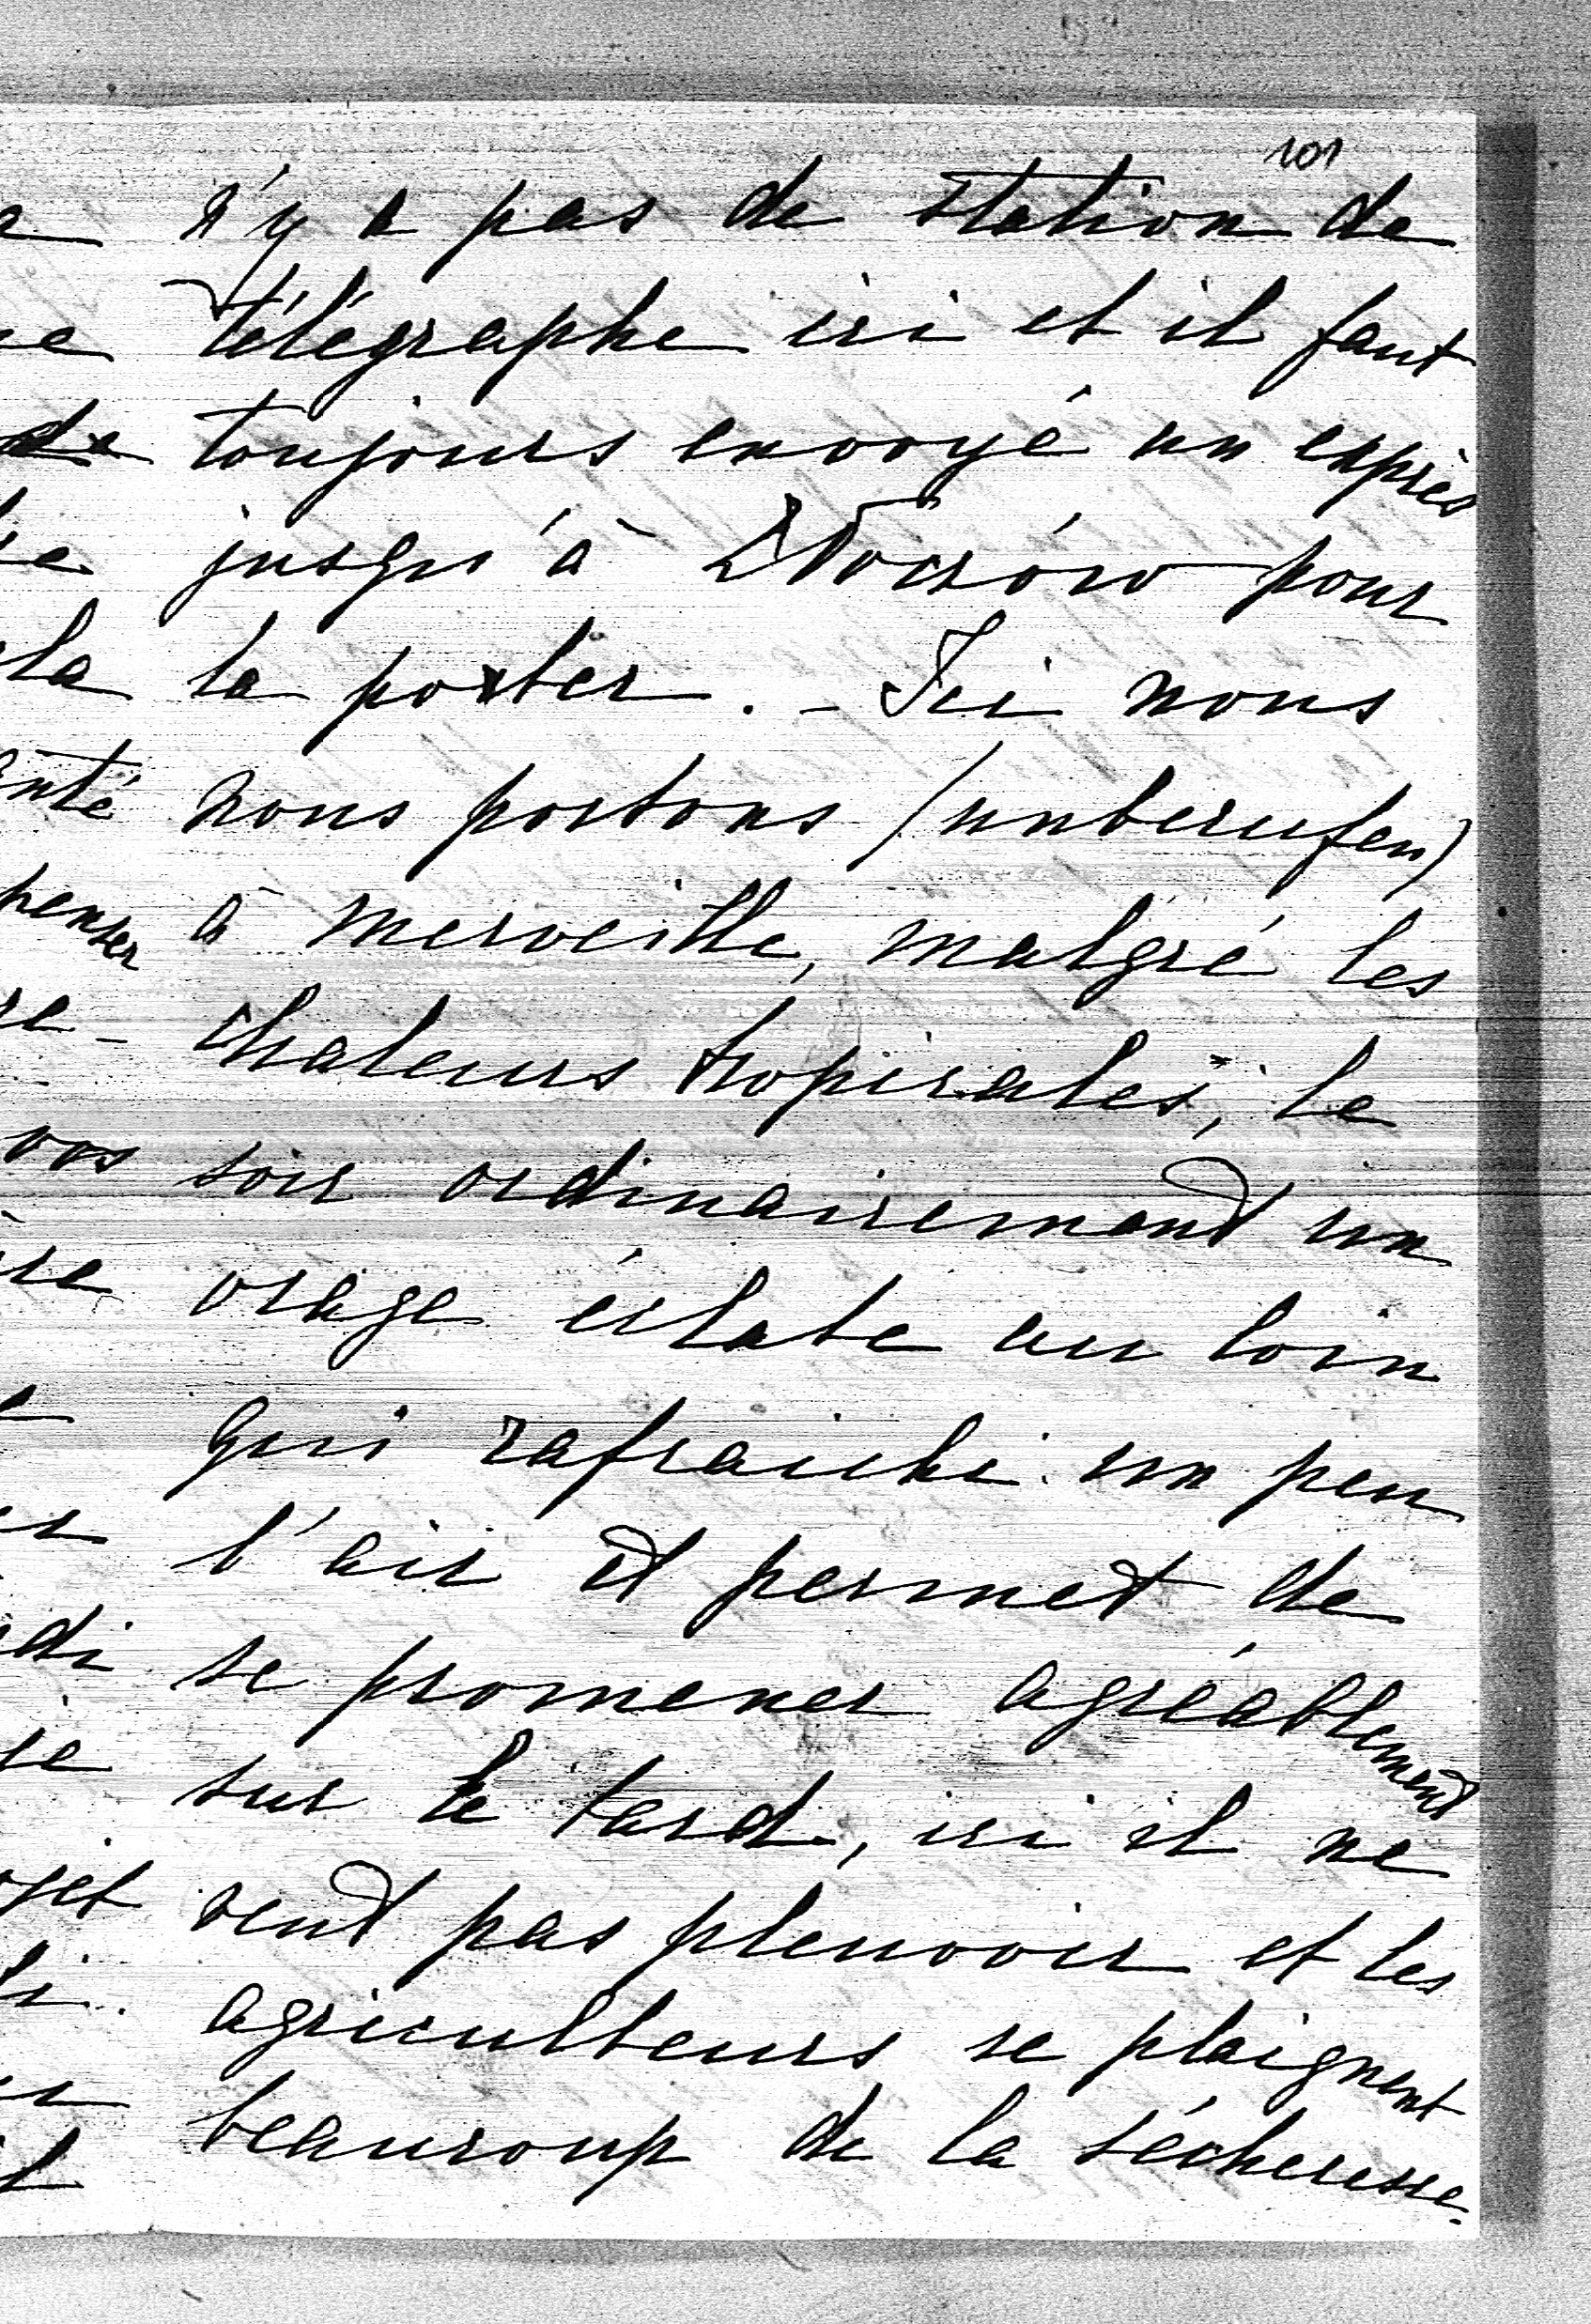 101
n'y a pas de station de
télégraphe ici et il faut
toujours envoyé un exprès
jusqu'à pour
la porter. - Ici nous
nous portons (unberufen)
à merveille, malgré les
chaleurs tropicales, le
soir ordinairement un
orage éclate au loin
qui rafraichi un peu
l'air et permet de
se promener agréablement
sur le tard, ici il ne
veut pas pleuvoir et les
agriculteurs se plaignent
beaucoup de la sécheresse.
de
la
penser
vos